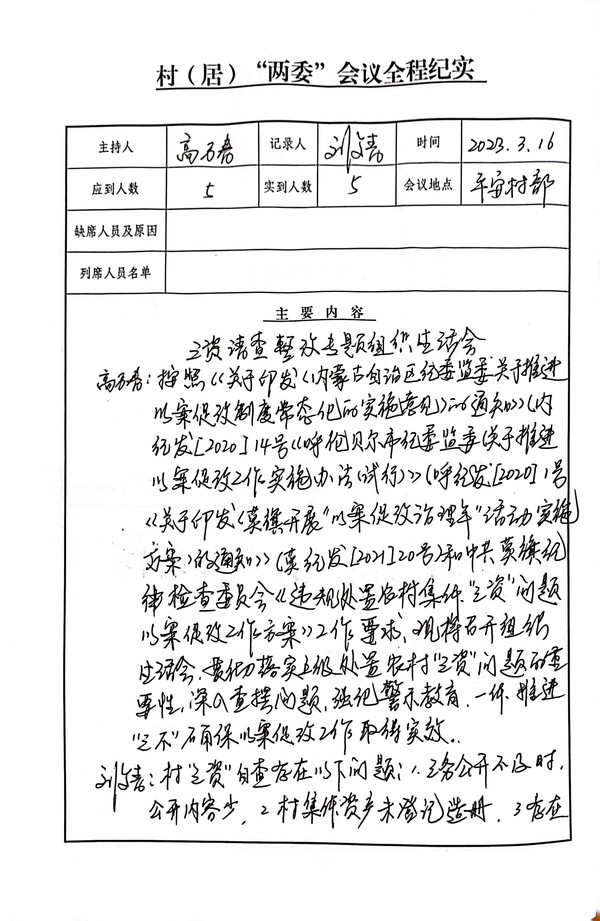 村（居）“两委”会议全程纪实
主持人 高万春 记录人 时间 2023.3.16
应到人数 5 实到人数 5 会议地点 平安村部
缺席人员及原因
列席人员名单
主要内容
三资清查整改专题组织生活会
高万春：按照《《关于印发《内蒙古自治区纪委监委关于推进
以案促改制度常态化的实施意见》的通知》》（内
纪发[2020]14号《《呼伦贝尔市纪委监委关于推进
以案促改工作实施办法（试行）》》（呼纪发[2020]1号
《《关于印发《莫旗开展“以案促改治理年”活动实施
方案》的通知》》（莫纪发[2021]20号）和中共莫旗纪
律检查委员会《《违规处置农村集体“三资”问题
以案促改工作方案》》工作要求，现将召开组织
生活会，贯彻落实上级处置农村“三资”问题的重
要性，深入查摆问题，强化警示教育，一体推进
“三不”确保以案促改工作取得实效。
村“三资”自查存在以下问题：1.三务公开不及时，
公开内容少，2村集体资产未登记造册，3存在